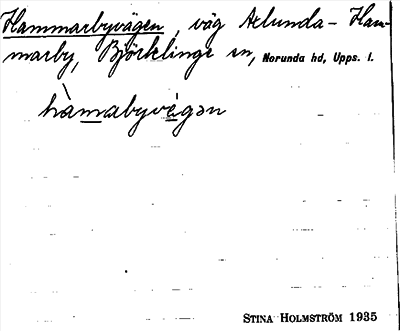 Hammarbyvägen, väg Axlunda-Ham-
marby, Björklinge sn, Norunda hd, Upps. l.
hàmabyvégən
STINA HOLMSTRÖM 1935